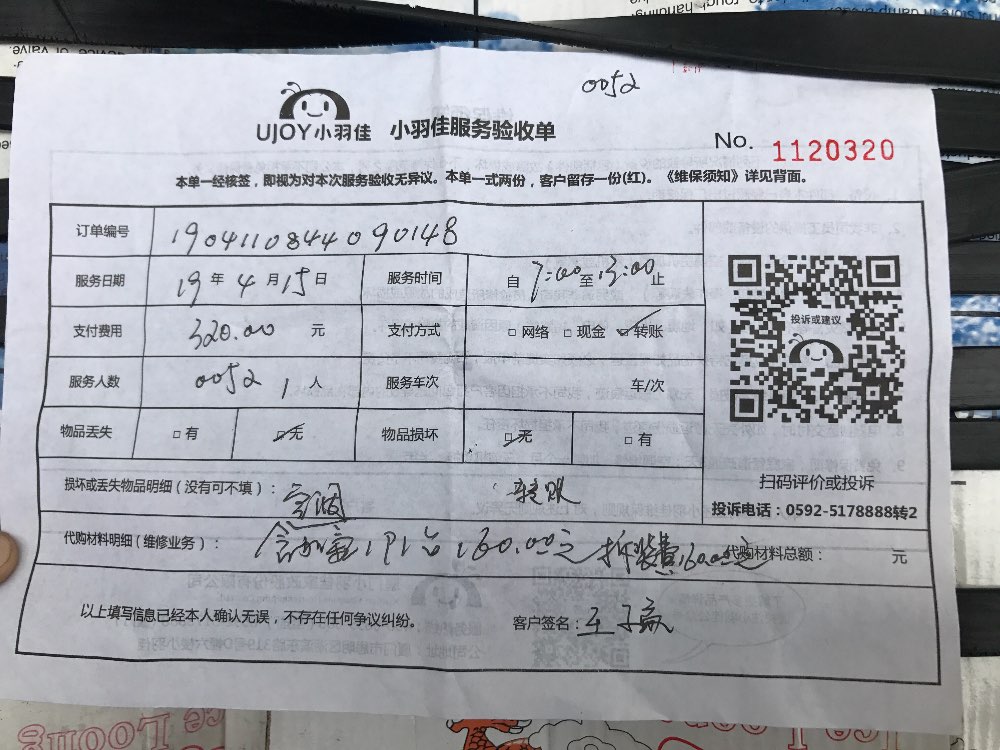 0052
UJOY小羽佳 小羽佳服务验收单
No. 1120320
本单一经核签，即视为对本次服务验收无异议。本单一式两份，客户留存一份(红)。《维保须知》详见背面。
订单编号 190411084409014８
服务日期 19 年 4 月 15 日 服务时间 自 7:00 至 13:00 止
支付费用 320.00 元 支付方式 □ 网络 □ 现金 ☑ 转账
服务人数 0052 1 人 服务车次 车/次
物品丢失 □ 有 ☑ 无 物品损坏 ☑ 无 □ 有
投诉或建议
扫码评价或投诉
投诉电话：0592-5178888转2
损坏或丢失物品明细（没有可不填）： 转账
代购材料明细（维修业务）： 1P1台160.00元 拆装费160.00元 代购材料总额： 元
以上填写信息已经本人确认无误，不存在任何争议纠纷。 客户签名：王子赢